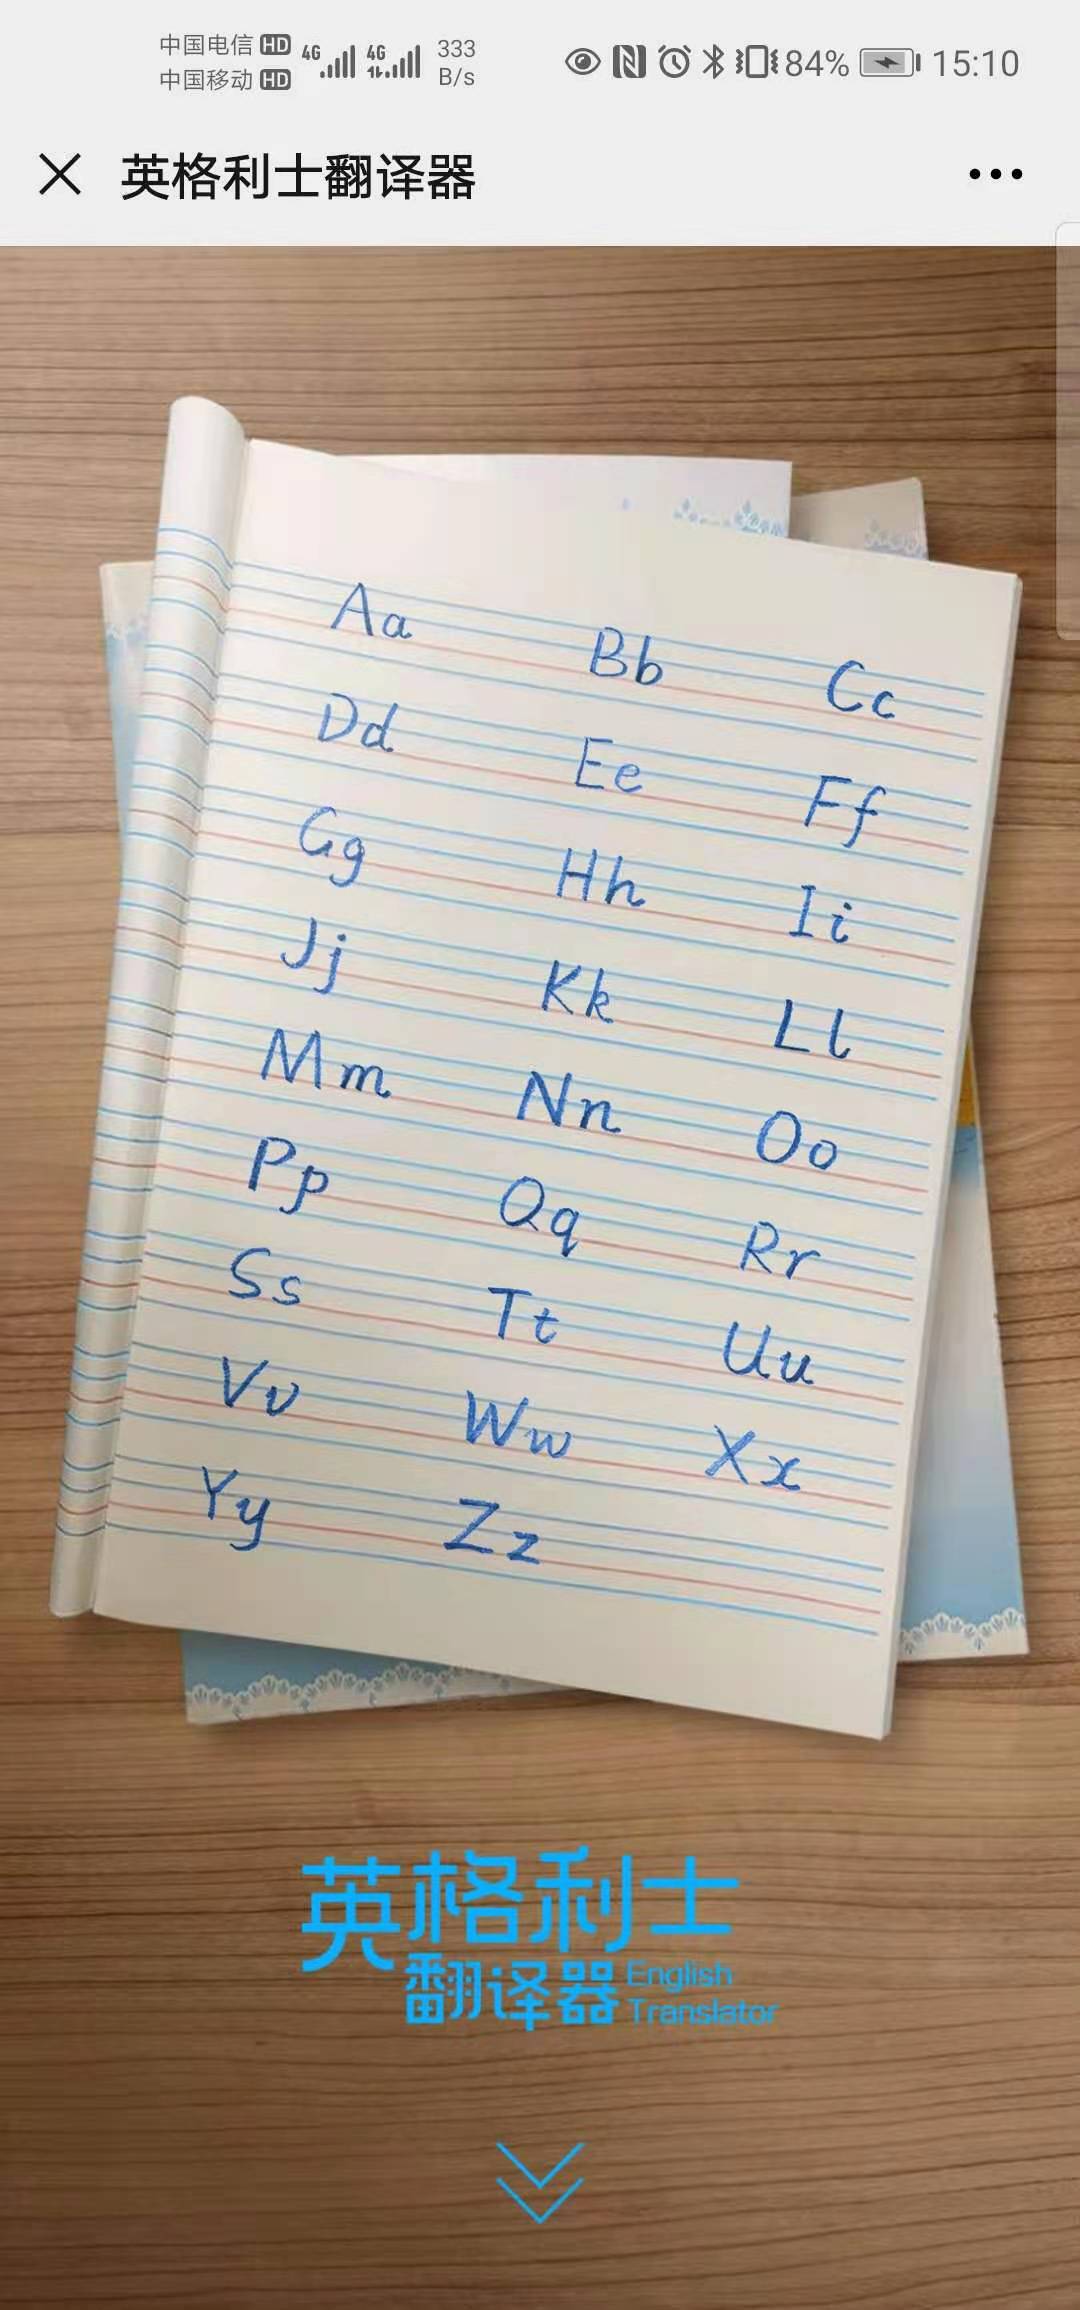 中国电信 HD 4G 4G 333 84% 15:10
中国移动 HD B/s
英格利士翻译器
Aa Bb Cc
Dd Ee Ff
Gg Hh Ii
Jj Kk Ll
Mm Nn Oo
Pp Qq Rr
Ss Tt Uu
Vv Ww Xx
Yy Zz
英格利士
翻译器 English
Translator